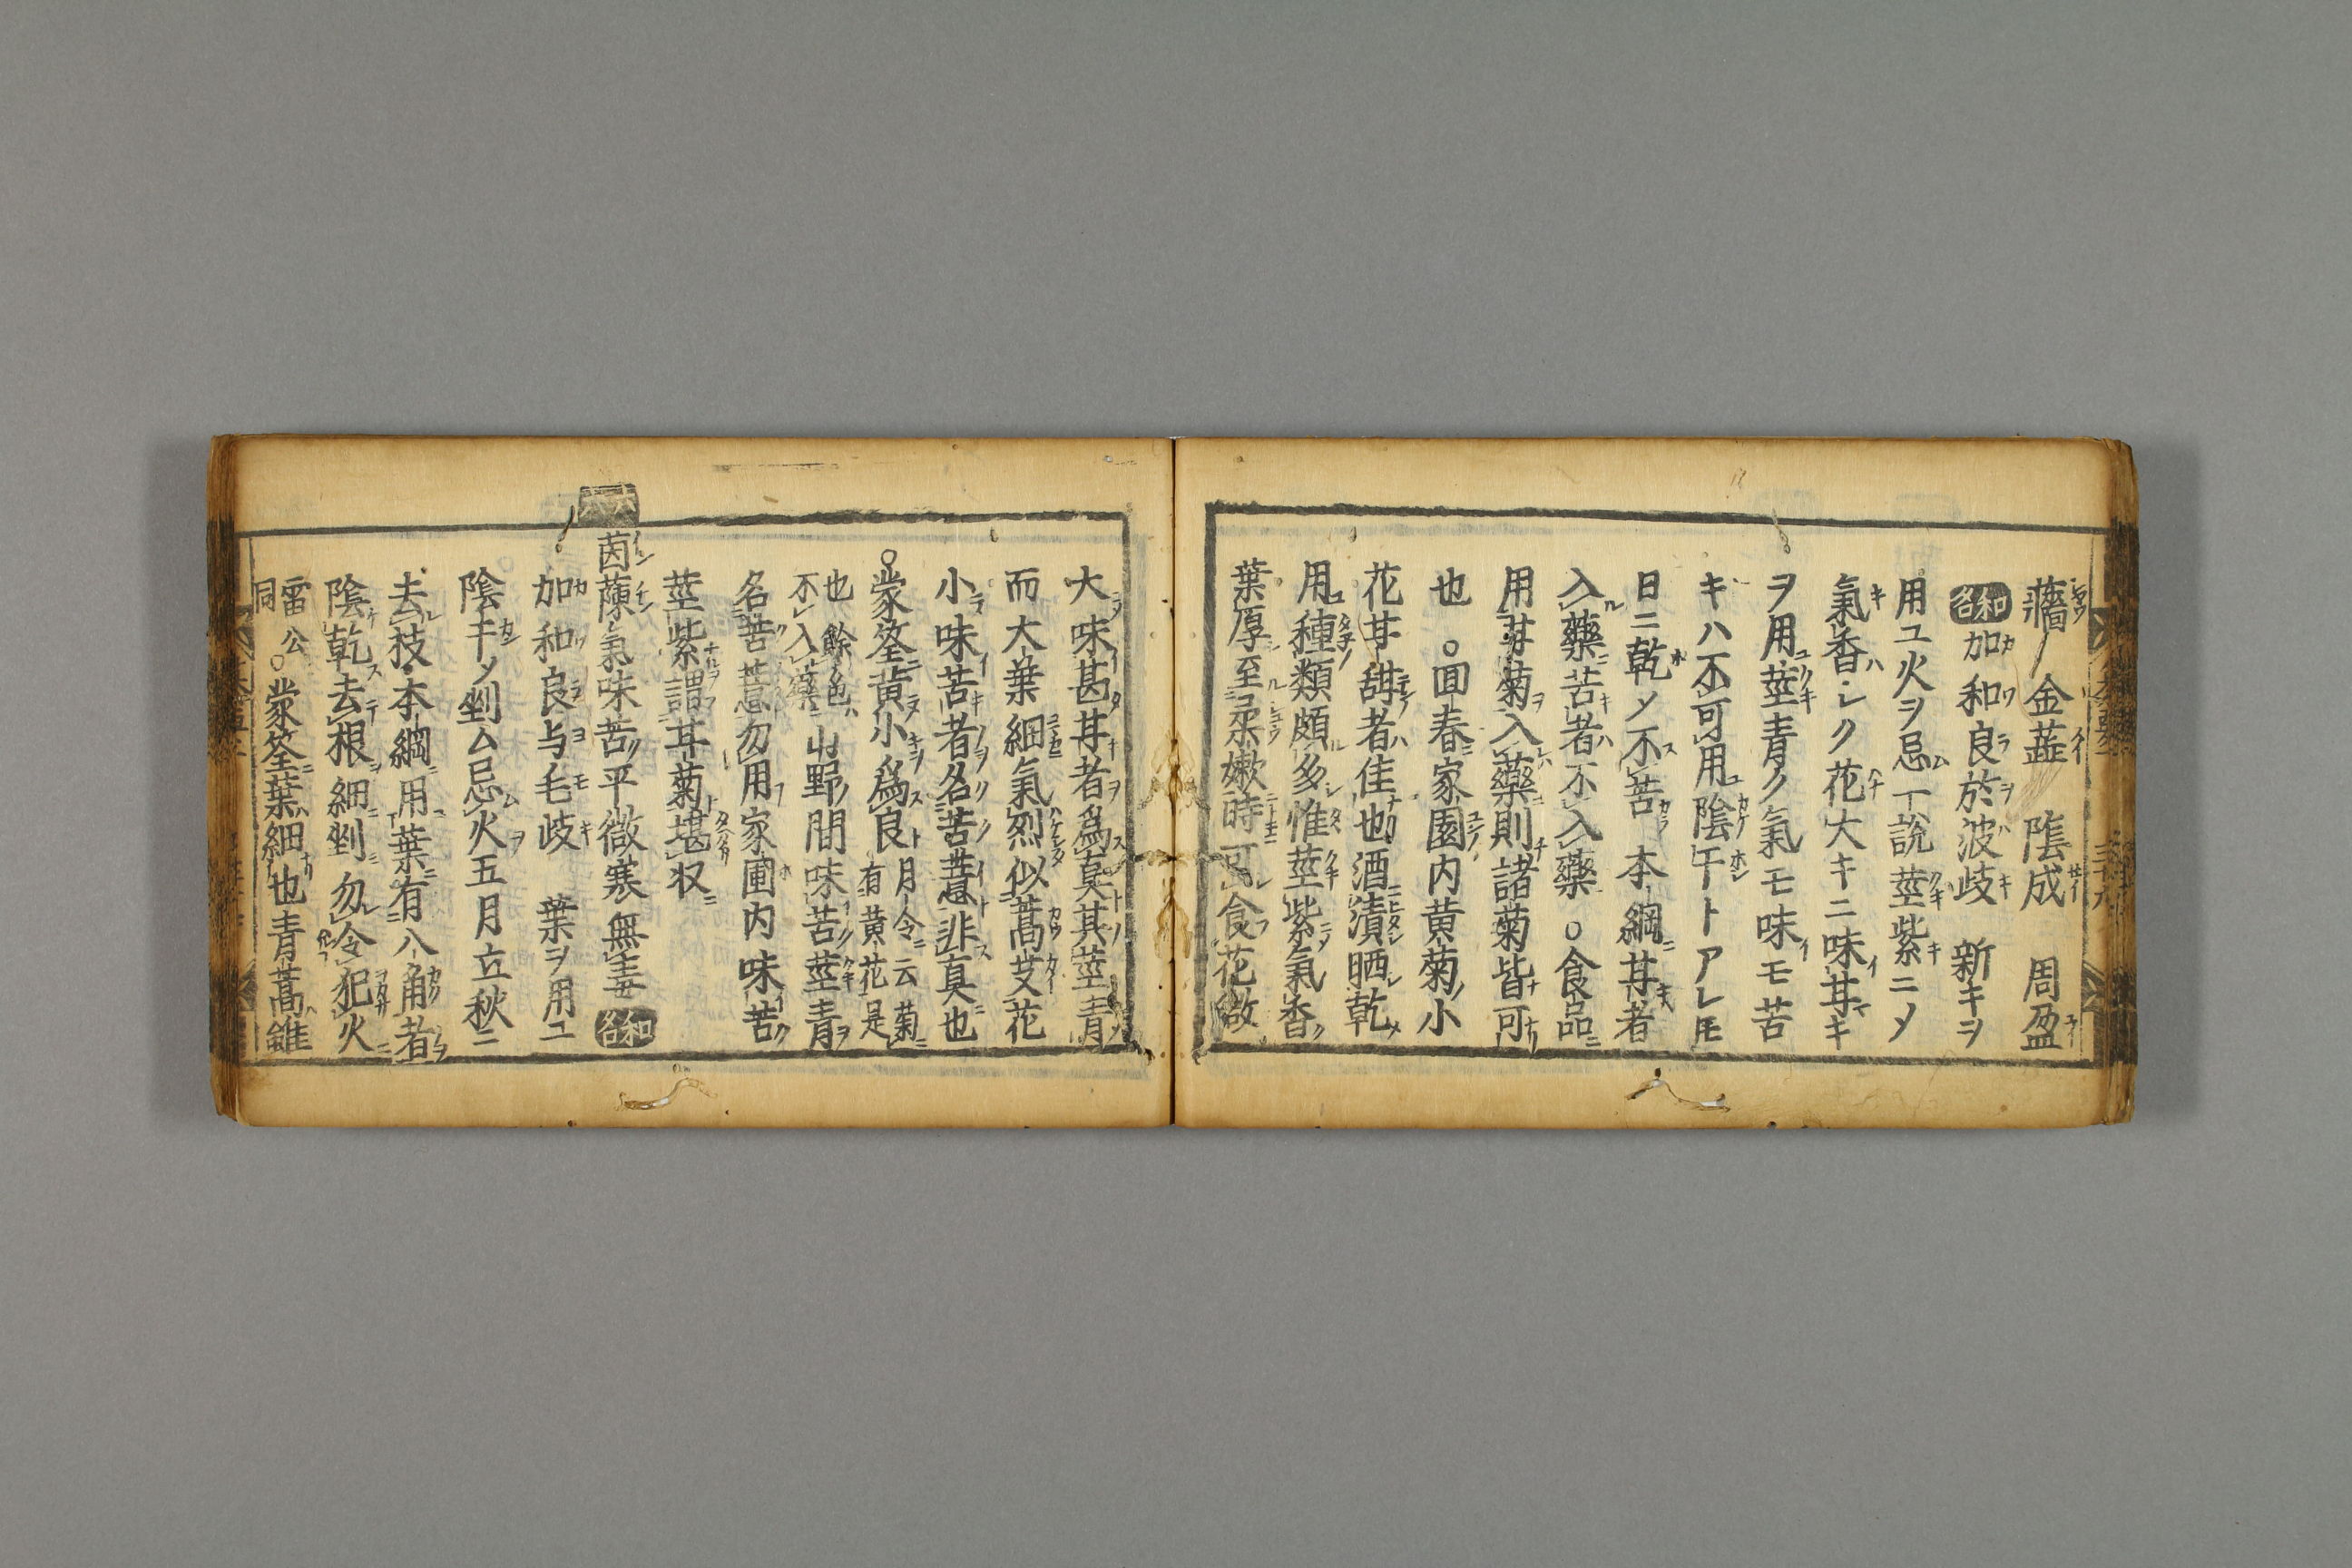 蘠　金蘂　陰成　周盈
和名加和良於波岐　新キヲ
用ユ火ヲ忌ム一說莖紫ニメ
氣香シク花大キニ味甘キ
ヲ用莖青ク氣モ味モ苦
キハ不可用陰干トアレ𪜈
日ニ乾メ不苦　本綱甘者
入藥苦者不入藥○食品
用甘菊入藥則諸菊皆可
也○回春家園内黄菊小
花甘甜者佳也酒漬晒乾
用種類頗多惟莖紫氣香
葉厚至柔嫩時可食花微
大味甚甘者爲真其莖青
而大葉細氣烈似蒿艾花
小味苦者名苦薏非真也
○蒙筌黄小爲良月令云菊有黄花是
也餘色不入藥山野間味苦莖青
名苦薏勿用家圃内味苦
莖紫謂甘菊堪収
六六
茵蔯氣味苦平微寒無毒和名
加和良与毛岐　葉ヲ用ユ
陰干メ剉ム忌火五月立秋ニ
去枝本綱用葉有八角者
陰乾去根細剉勿令犯火
雷公同○蒙筌葉細也青蒿雖